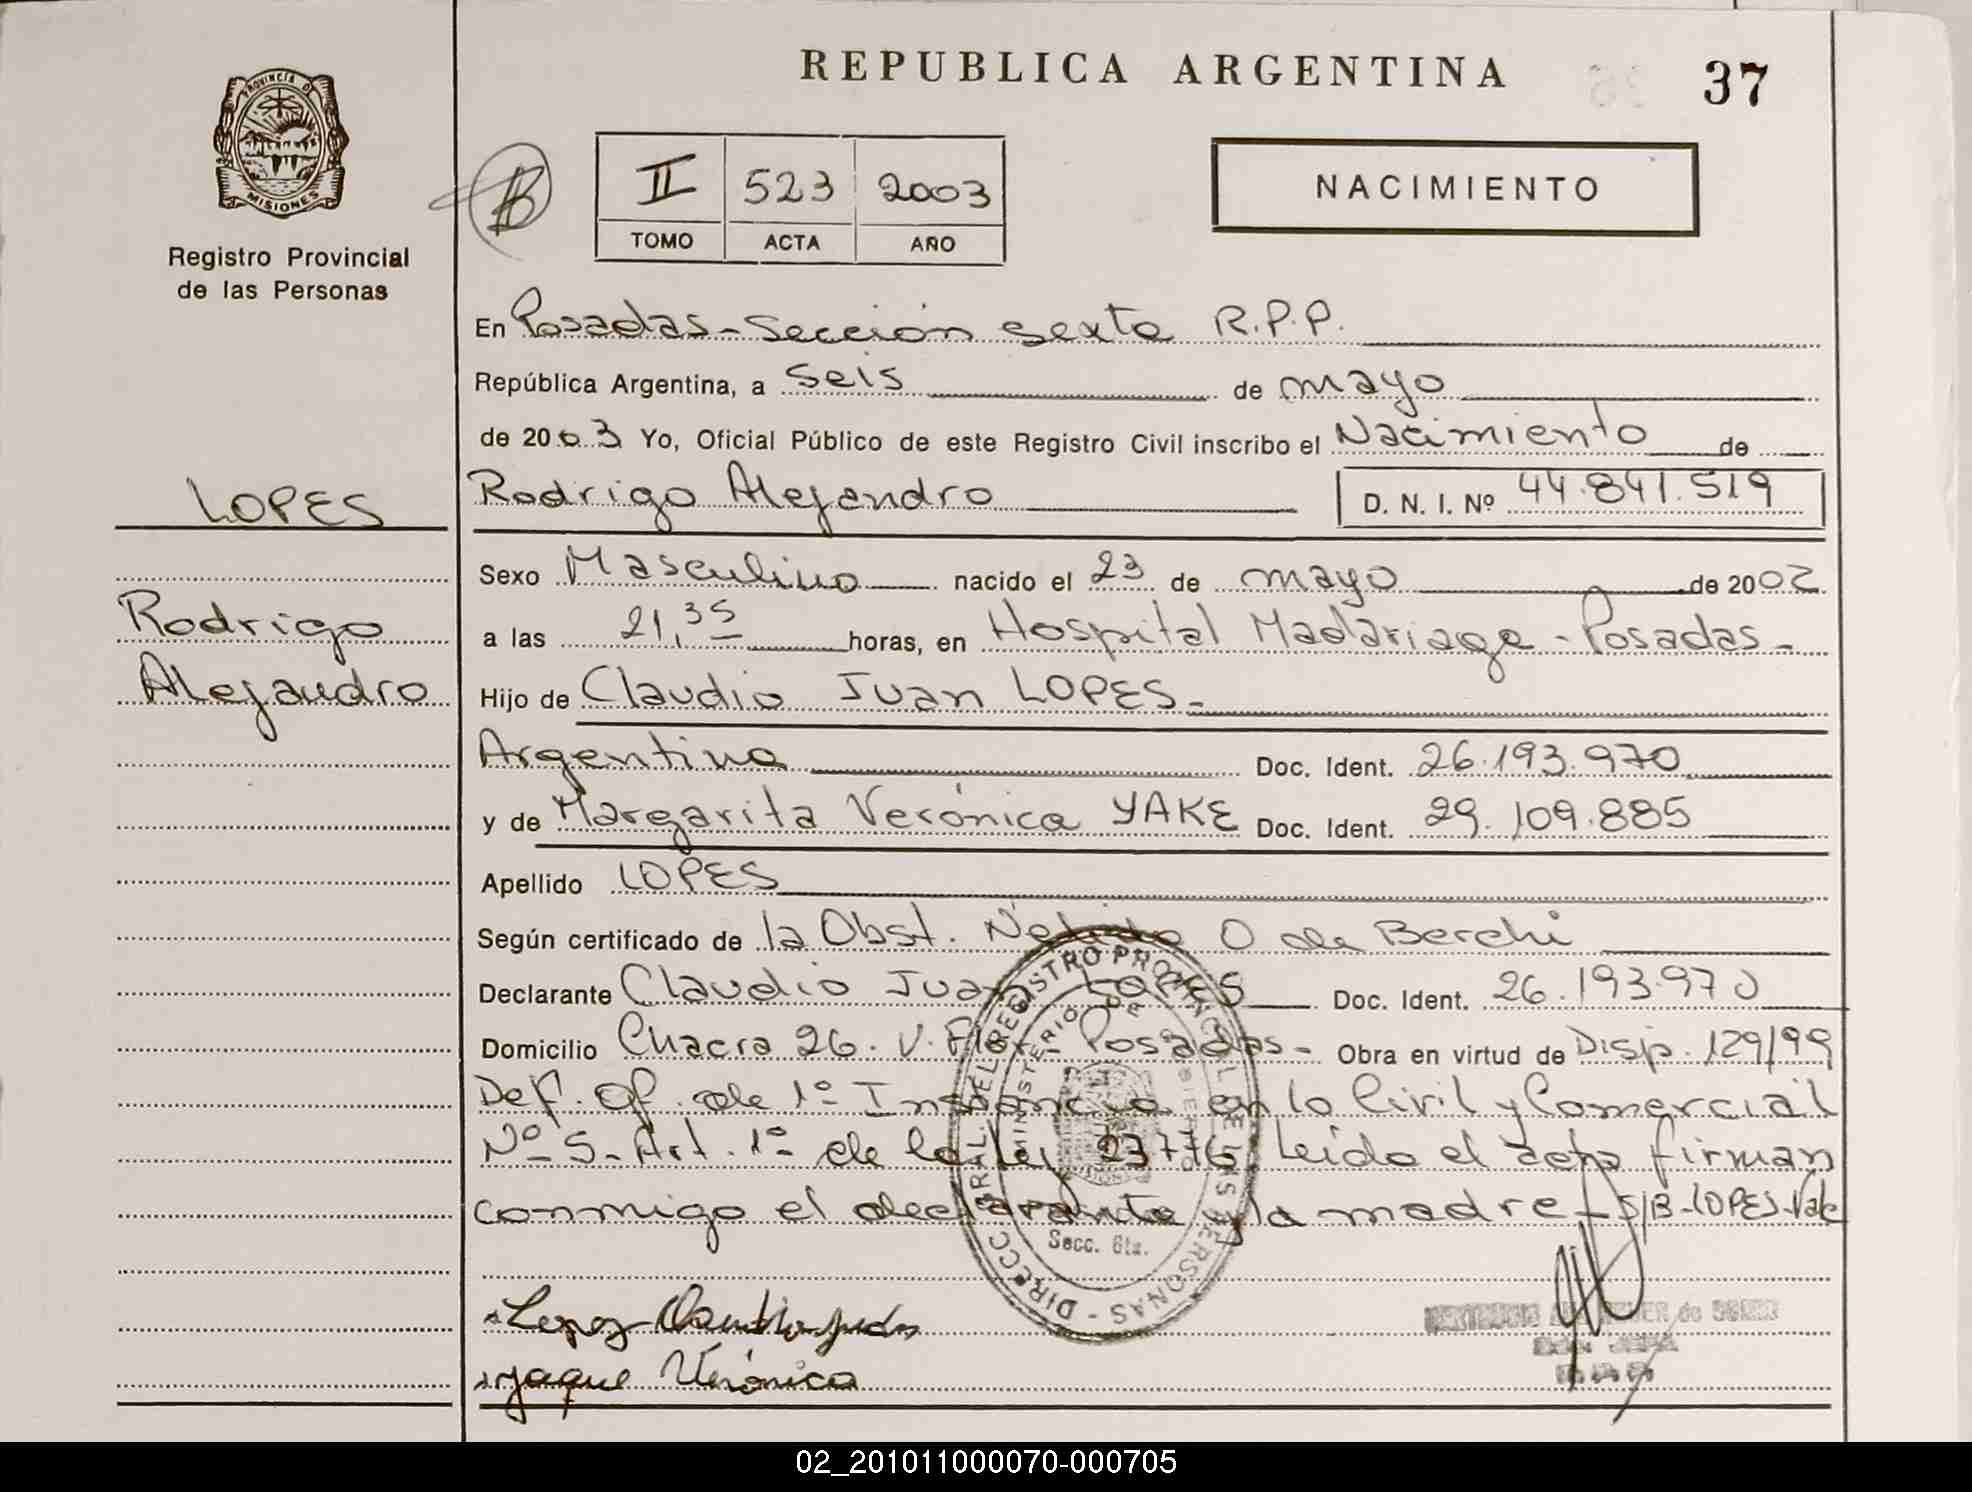 REPUBLICA ARGENTINA
37
PROVINCIA DE
MISIONES
Registro Provincial
de las Personas
B
II 523 2003
TOMO ACTA AÑO
NACIMIENTO
En Posadas - Sección sexta R.P.P.
República Argentina, a seis de mayo
de 2003 Yo, Oficial Público de este Registro Civil inscribo el Nacimiento de
Rodrigo Alejandro D. N. I. Nº 44.841.519
LOPES
Rodrigo
Alejandro
Sexo Masculino nacido el 23 de mayo de 2002
a las 21,35 horas, en Hospital Madariaga - Posadas -
Hijo de Claudio Juan LOPES -
Argentino Doc. Ident. 26.193.970
y de Margarita Verónica YAKE Doc. Ident. 29.109.885
Apellido LOPES
Según certificado de la Obst. Nélida O de Berchi
Declarante Claudio Juan LOPES Doc. Ident. 26.193.970
Domicilio Chacra 26. V. Flor - Posadas - Obra en virtud de Disp. 129/99
Def. Of. de 1º Instancia en lo Civil y Comercial
Nº 5 - Art. 1º de la Ley 23776. Leído el acta firman
conmigo el declarante y la madre - S/B - LOPES - Vale
DIRECC. GRAL. DEL REGISTRO PROVINCIAL DE LAS PERSONAS -
MINISTERIO DE
Secc. 6ta.
Lopez Claudio Juan
yaque Verónica